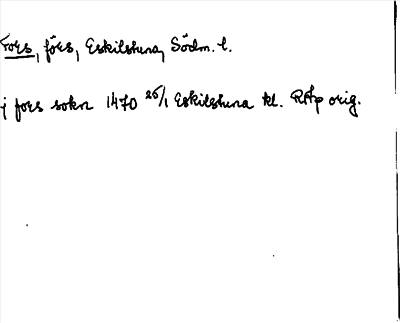 Fors, förs, Eskilstuna, Södm. l.
j fors sokn 1470 25/1 Eskilstuna kl. RAp orig.